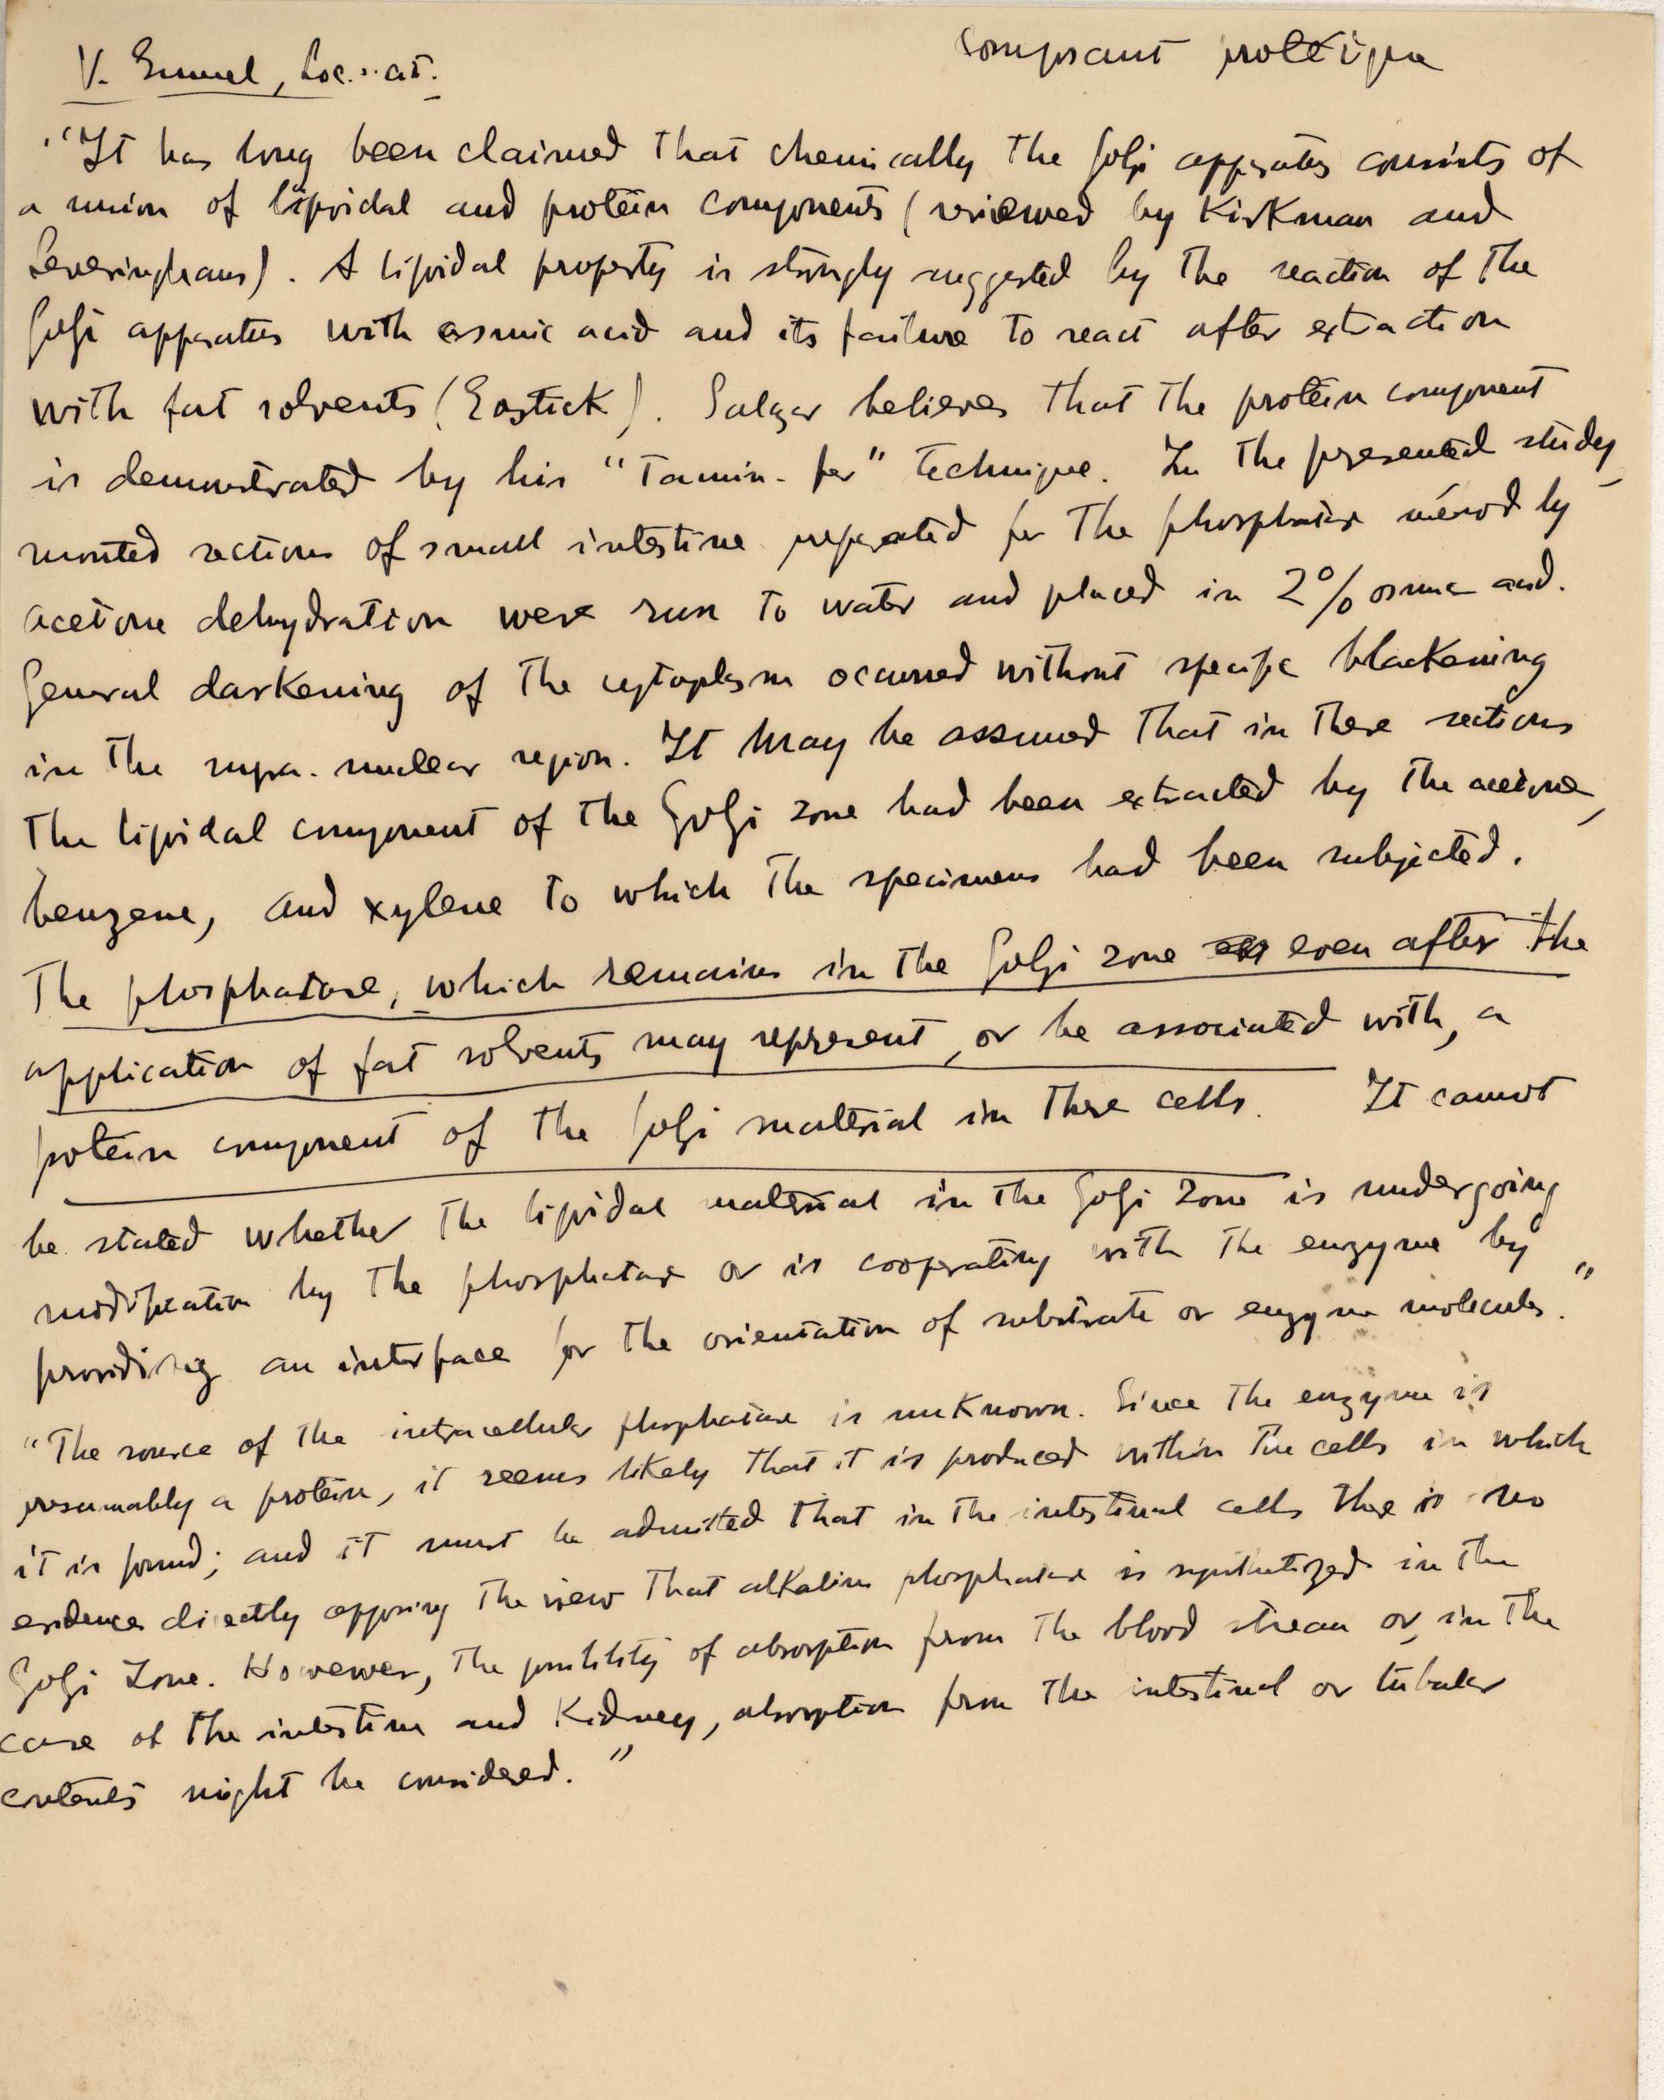 V. Emmel, Loc. cit.
Composant protéique
"It has long been claimed that chemically the Golgi apparatus consists of
a union of lipoidal and protein components (reviewed by Kirkman and
Severinghaus). A lipoidal property is strongly suggested by the reaction of the
Golgi apparatus with osmic acid and its failure to react after extraction
with fat solvents (Eastick). Salazar believes that the protein component
is demonstrated by his "Tannin-fer" technique. In the presented study,
mounted sections of small intestine preparated for the phosphatase method by
acetone dehydration were run to water and placed in 2% osmic acid.
General darkening of the cytoplasm occurred without specific blackening
in the supra-nuclear region. It may be assumed that in these sections
the lipoidal component of the Golgi zone had been extracted by the acetone,
benzene, and xylene to which the specimens had been subjected.
The phosphatase, which remains in the Golgi zone even after the
application of fat solvents may represent, or be associated with, a
protein component of the Golgi material in these cells. It cannot
be stated whether the lipoidal material in the Golgi zone is undergoing
modification by the phosphatase or is cooperating with the enzyme by
providing an interface for the orientation of substrate or enzyme molecules."
"The source of the intracellular phosphatase is unknown. Since the enzyme is
presumably a protein, it seems likely that it is produced within the cells in which
it is found; and it must be admitted that in the intestinal cells there is no
evidence directly opposing the view that alkaline phosphatase is synthetized in the
Golgi Zone. However, the possibility of absorption from the blood stream or, in the
case of the intestine and Kidney, absorption from the intestinal or tubular
contents might be considered."